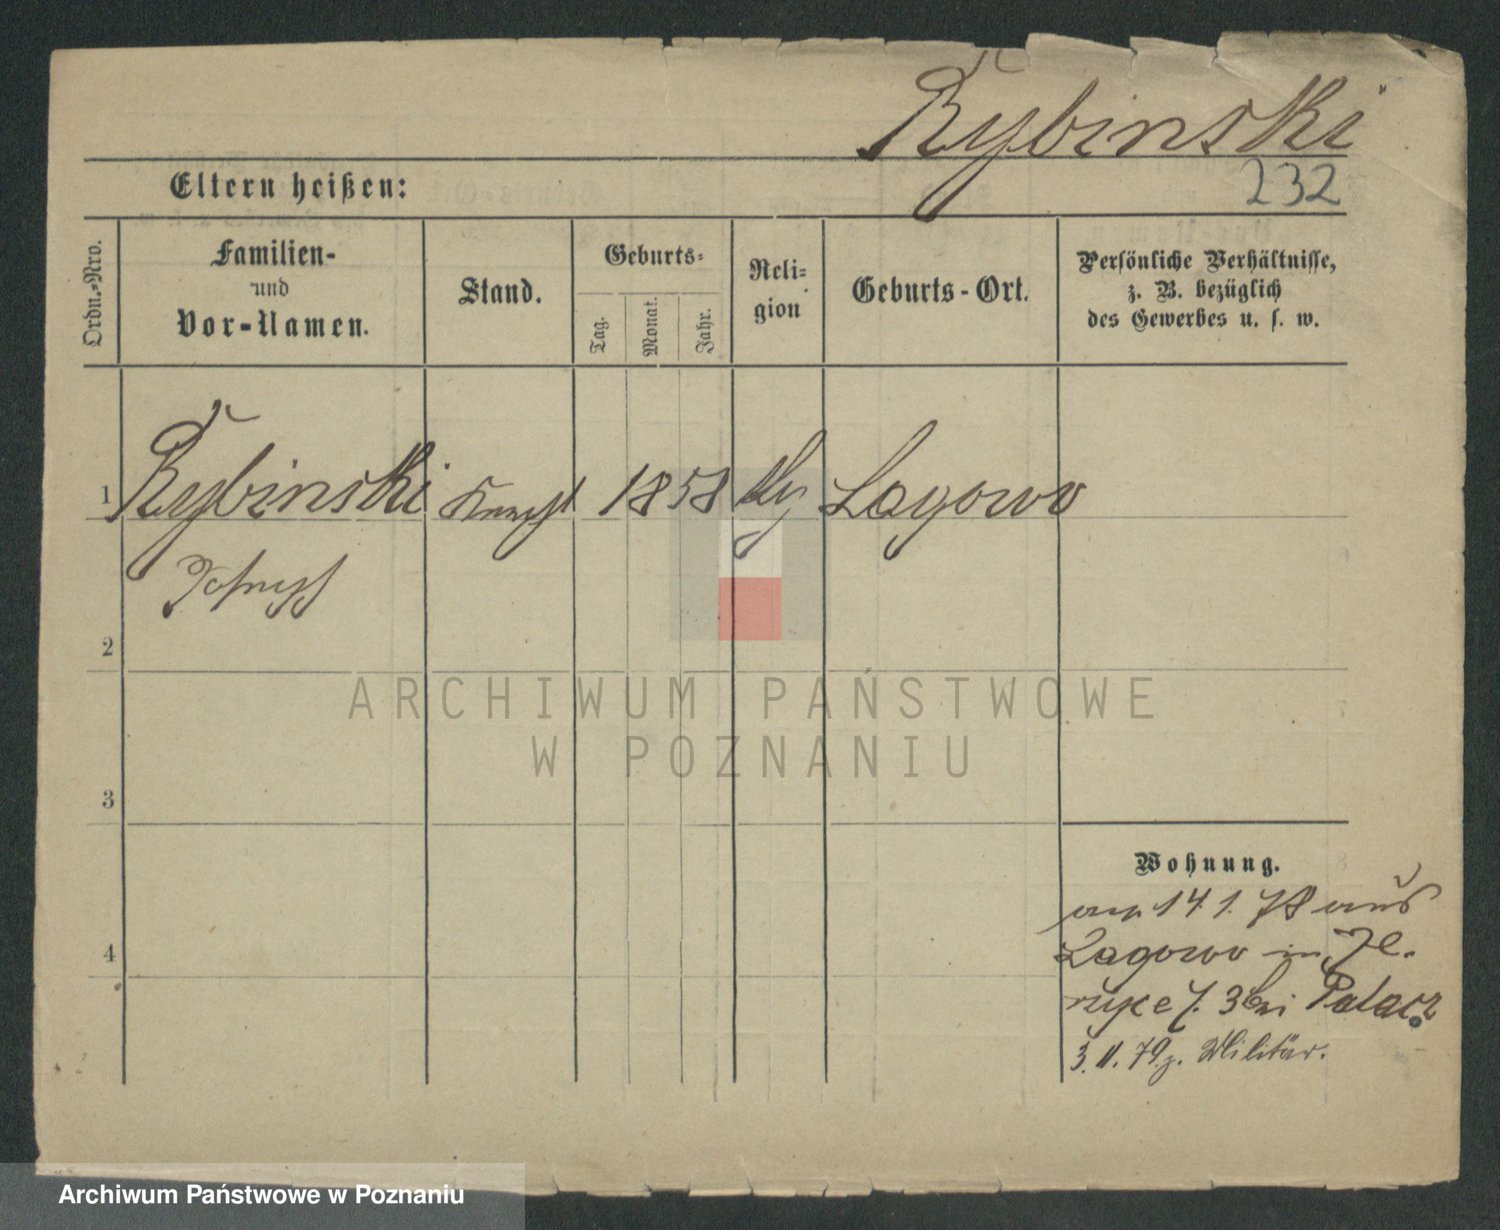 Rybinski
Eltern heißen:
232
Ordn.-Nro.
Familien-
und
Vor-Namen.
Stand.
Geburts-
Tag.
Monat.
Jahr.
Reli-
gion
Geburts-Ort.
Persönliche Verhältnisse,
z. B. bezüglich
des Gewerbes u. s. w.
1
Rybinski
Knecht
1858
Lagowo
Joseph
2
3
4
Wohnung.
14. 1. 78 aus
Lagowo in Je-
rzyce /. 3 bei Palacz
3. 11. 79 z. Militär.
ARCHIWUM PAŃSTWOWE
W POZNANIU
Archiwum Państwowe w Poznaniu